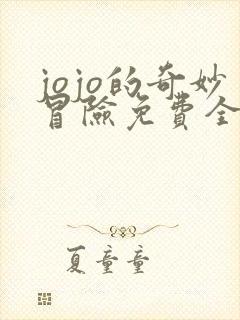 jojo的奇妙
冒險免費全
夏童童